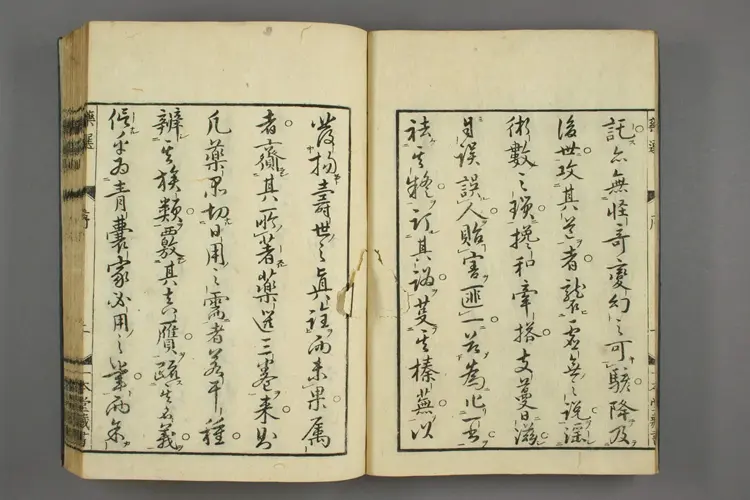 無怪奇變幻之可駭降及
後世攻其道者襲虛無之說
術數之瑣攙和牽搭支蔓日滋
自誤誤人貽害匪一
祛其訂其謬芟其榛蕪以
發揚壽世之真詮而未果属
者齎其所著藥選三卷來則
凡藥品切日用之需者若干種
辨其族類覈其真贋疏其名義
信乎爲青囊家必用之業而余
藥選
序
本堂藏書